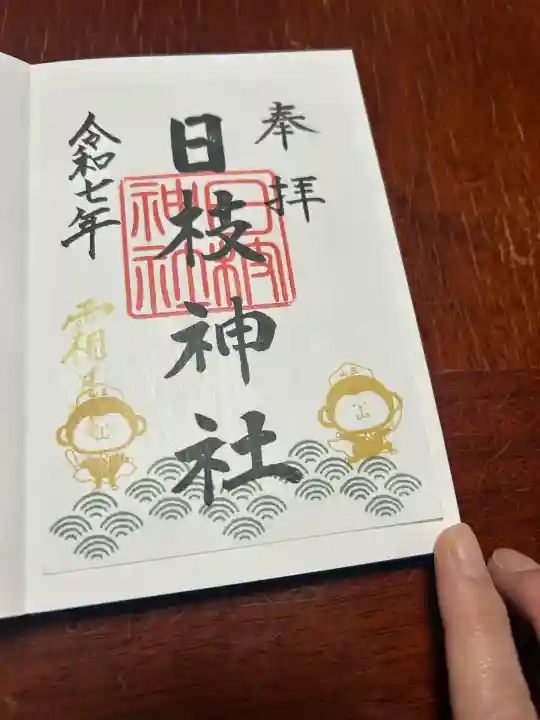 奉拝
日枝神社
日枝神社
令和七年
霜月